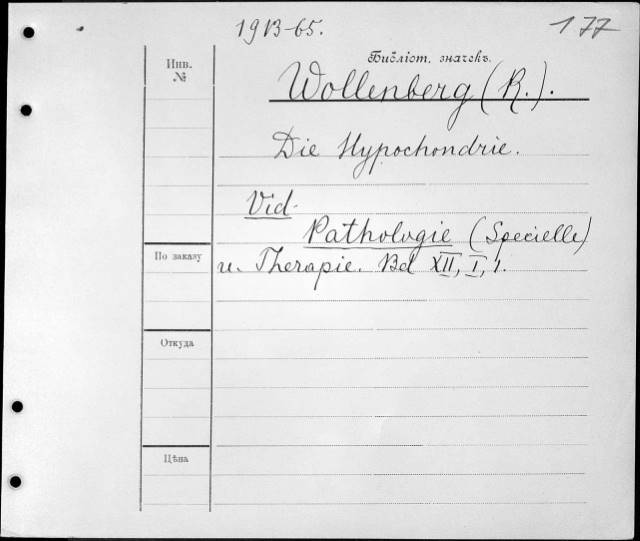 1913-65.
177
Инв.
№
Библіот. значекъ.
Wollenberg (R.).
Die Hypochondrie.
Vid.
Pathologie (Specielle)
По заказу
u. Therapie. Bd XII, I, 1.
Откуда
Цѣна